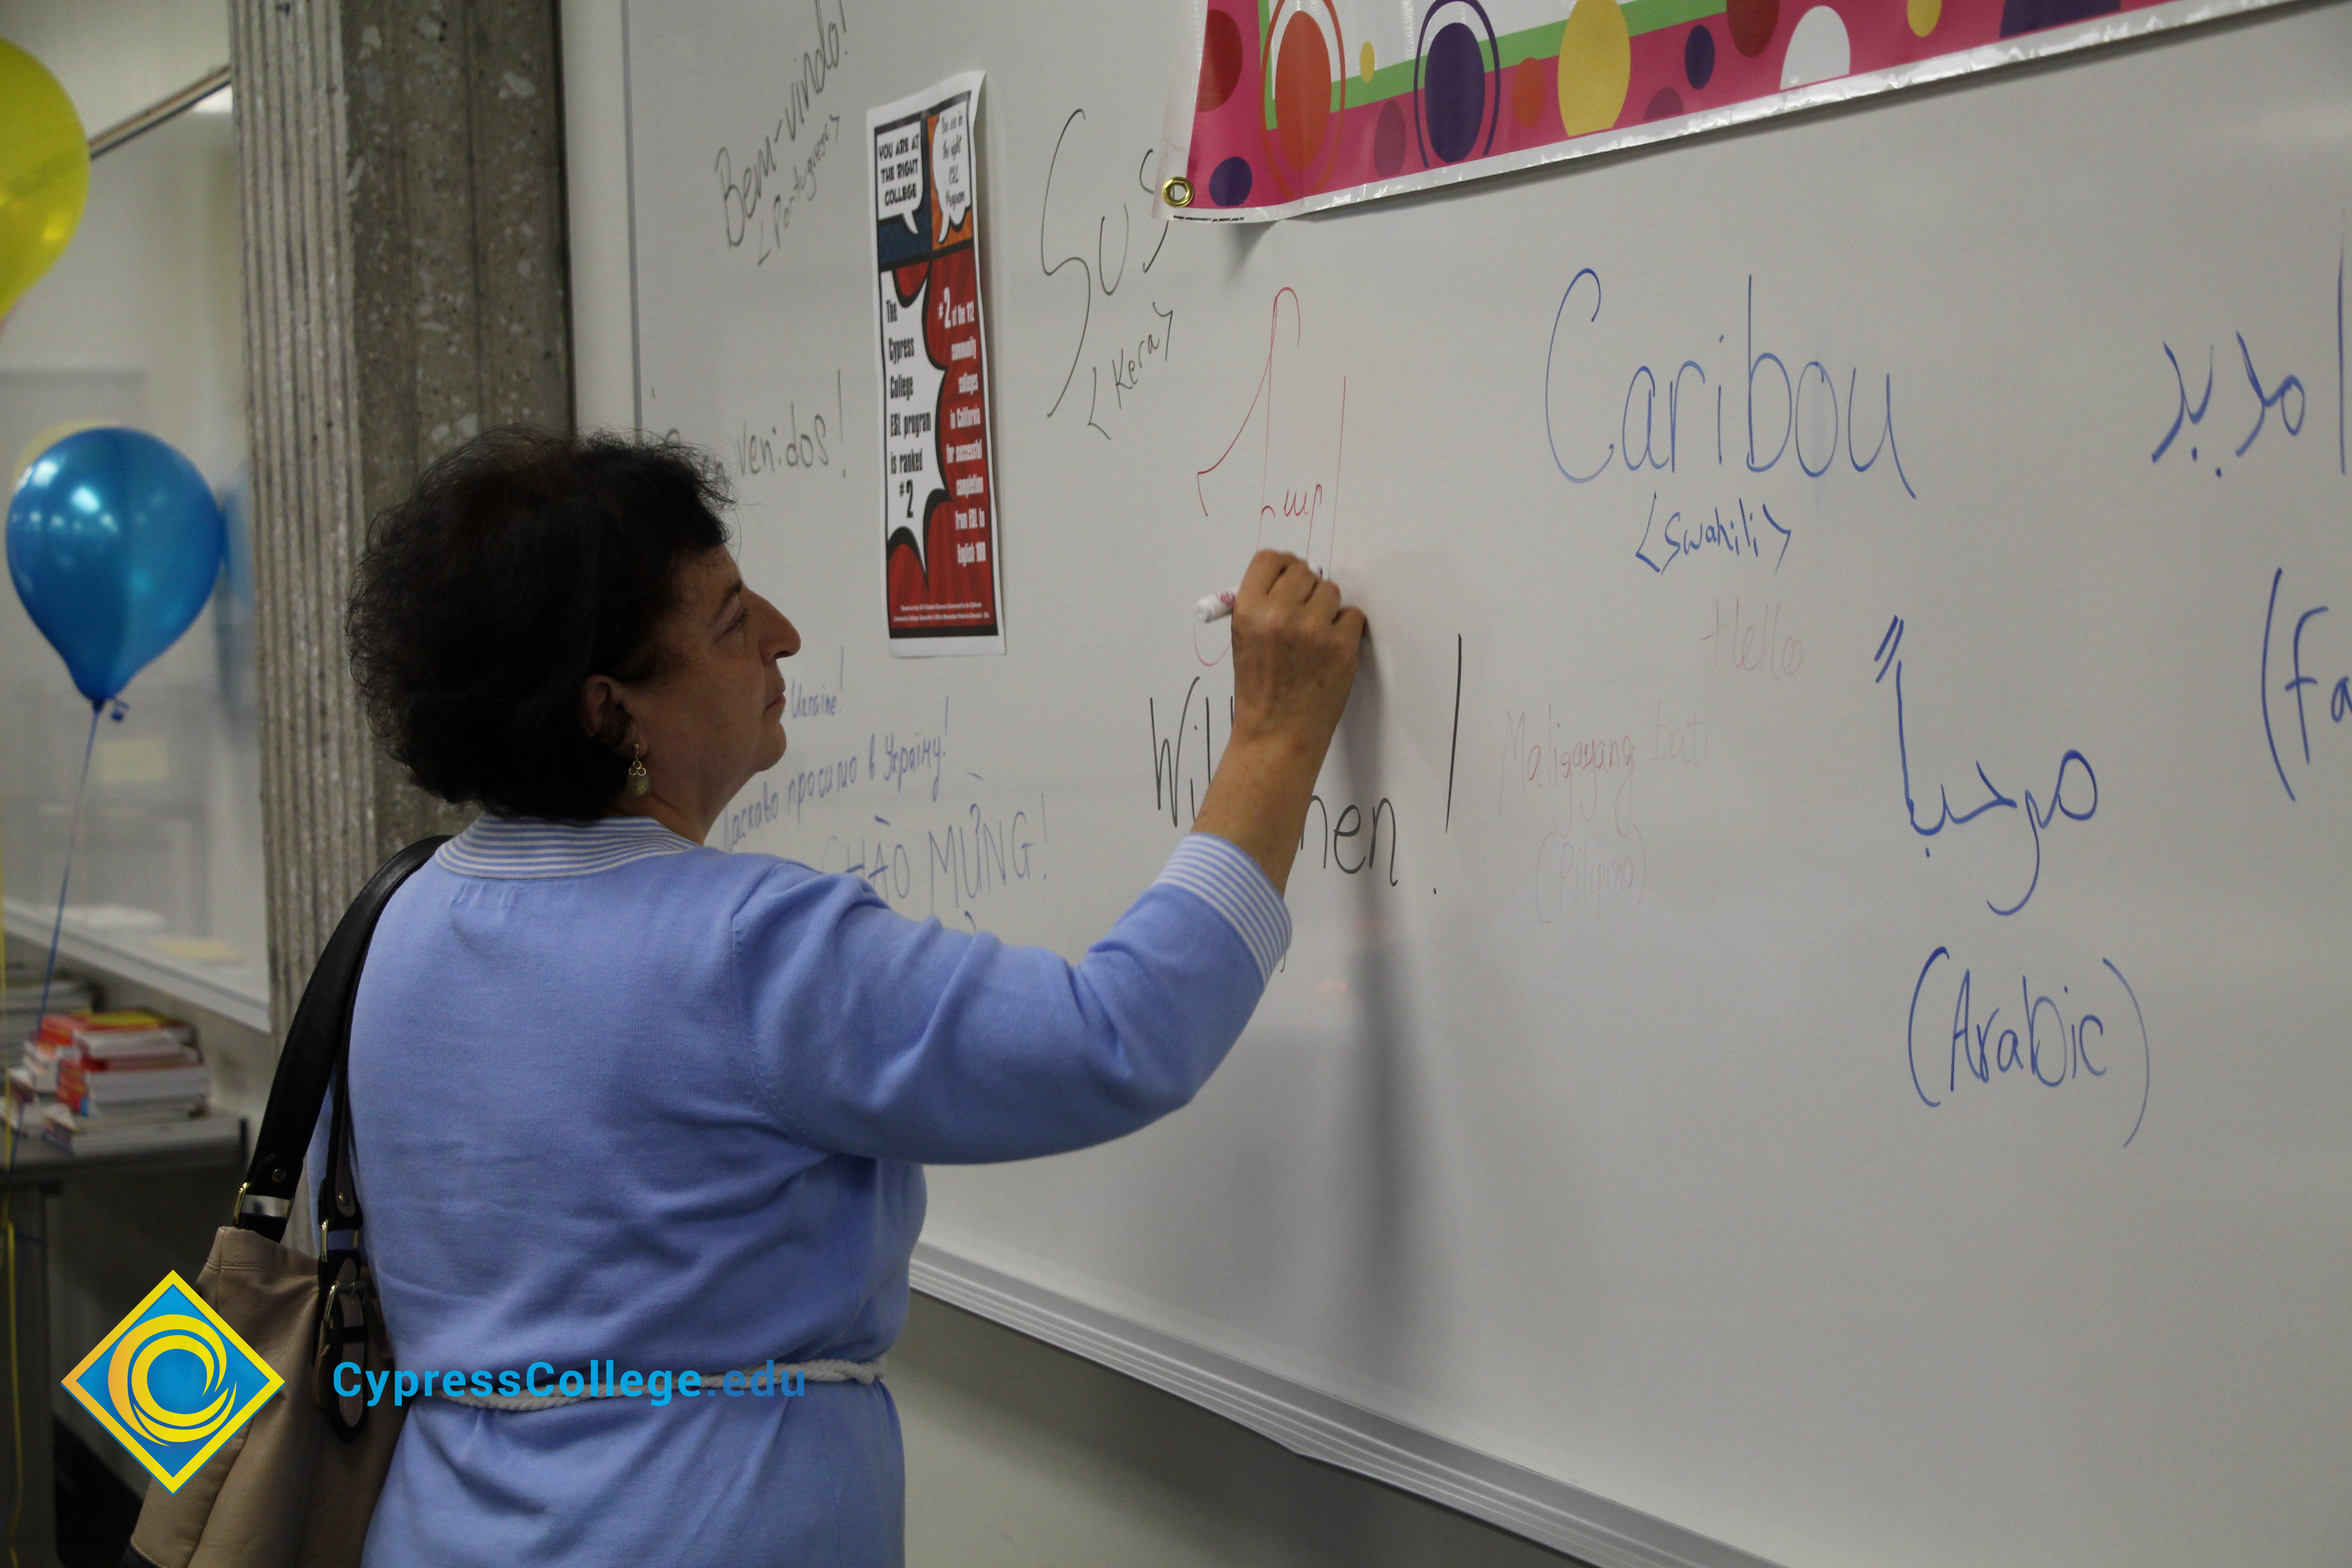 Bem-vindo!
<Portuguese>
YOU ARE AT
THE RIGHT
COLLEGE
You are in
the right
ESL
Program
The
Cypress
College
ESL program
is ranked
#2
#2 of the 112
community
colleges
in California
for successful
completion
from ESL to
English 100
Sus
<Kera>
Caribou
<Swahili>
venidos!
Hello
Ukraine!
Ласкаво просимо в Україну!
CHÀO MỪNG!
Wil
men!
Maligayang bati
(Pilipino)
مرحباً
(Arabic)
(Fa
CypressCollege.edu